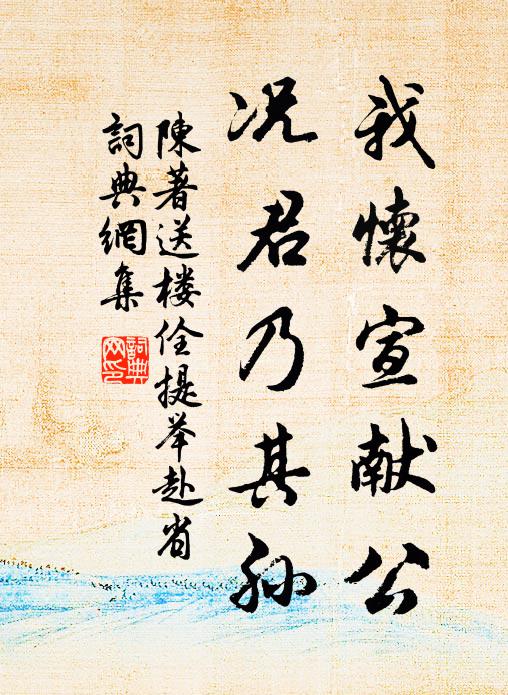 我懷宣献公
况君乃其孙
陳著送楼佺提举赴省
詞典網集
詞典網印